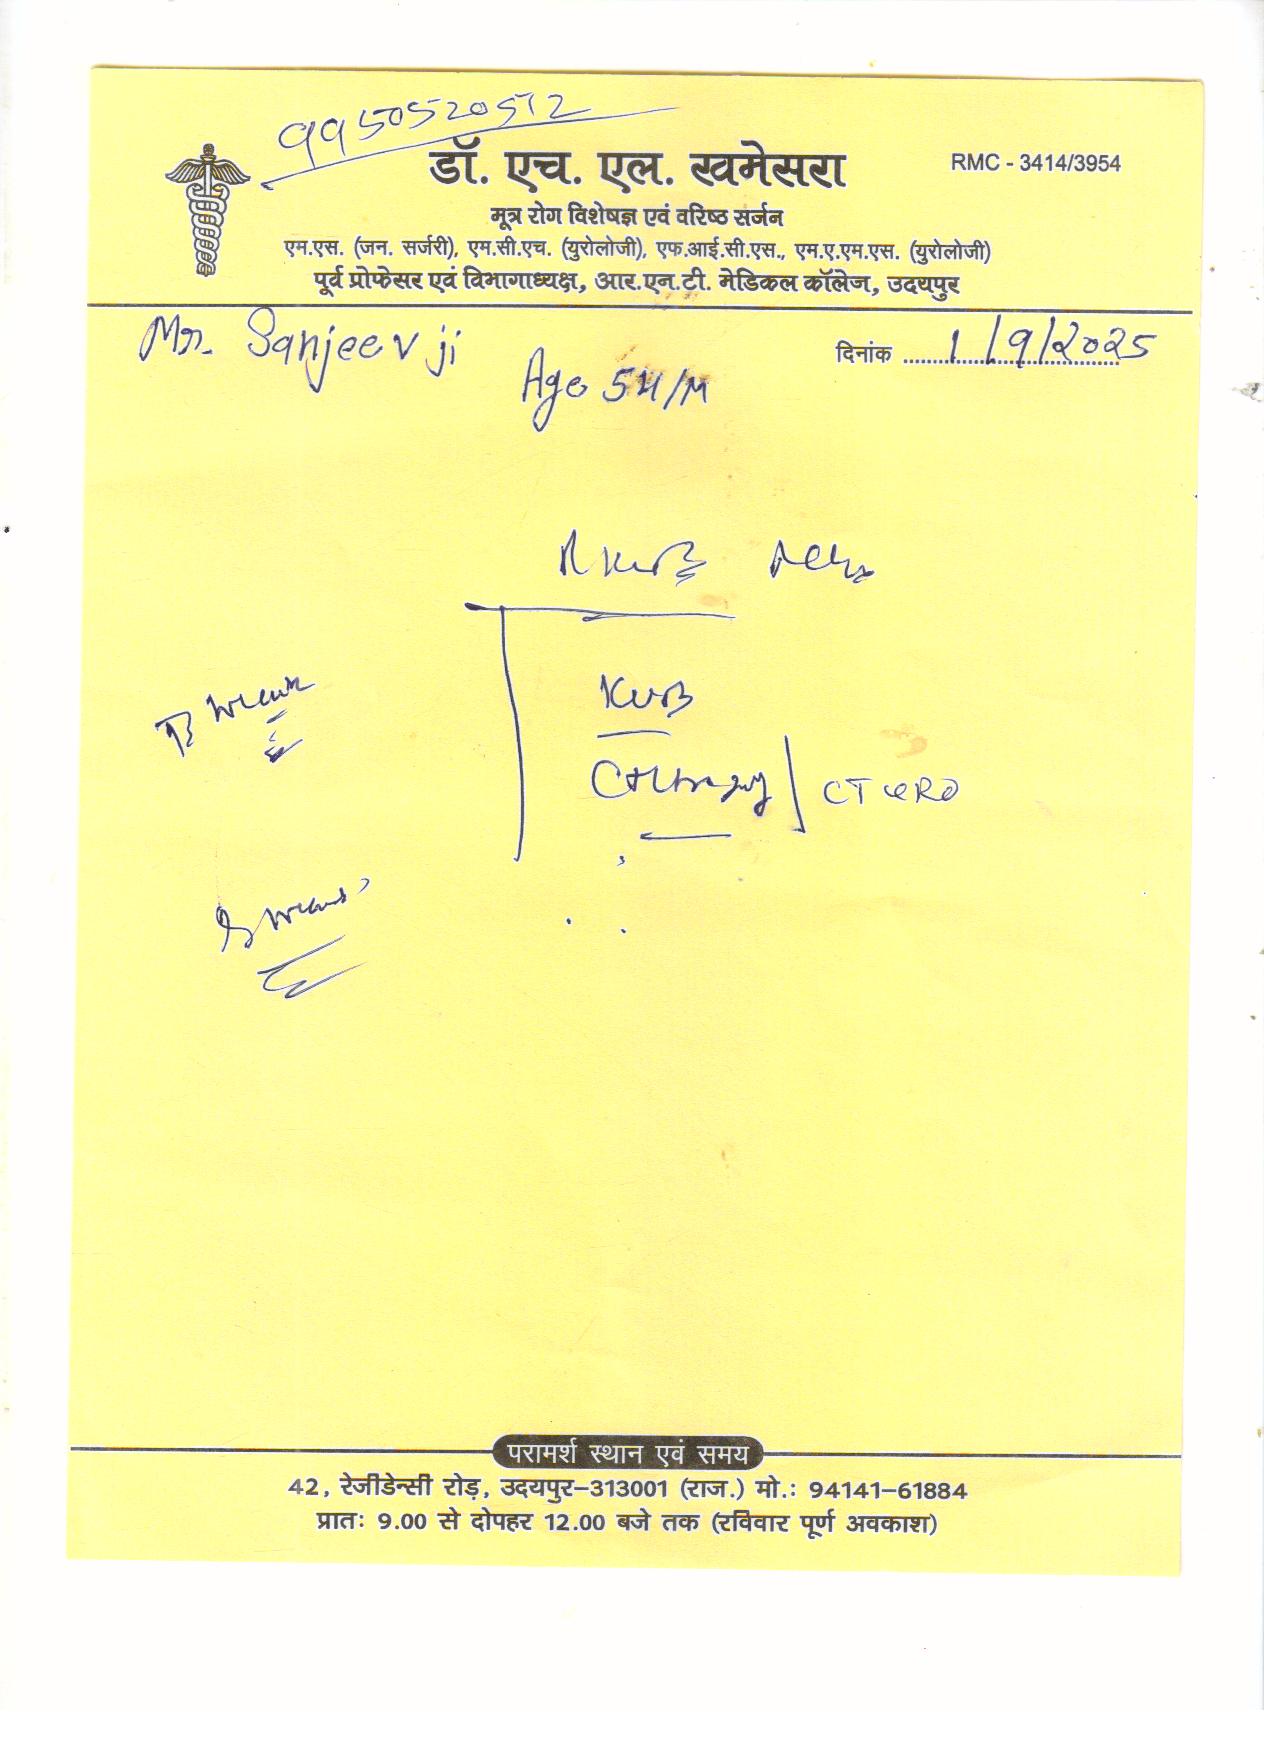 9950520512
डॉ. एच. एल. खमेसरा
RMC - 3414/3954
मूत्र रोग विशेषज्ञ एवं वरिष्ठ सर्जन
एम.एस. (जन. सर्जरी), एम.सी.एच. (युरोलोजी), एफ.आई.सी.एस., एम.ए.एम.एस. (युरोलोजी)
पूर्व प्रोफेसर एवं विभागाध्यक्ष, आर.एन.टी. मेडिकल कॉलेज, उदयपुर
Mr. Sanjeev ji
दिनांक 1/9/2025
Age 54/M
KUB
CT URO
परामर्श स्थान एवं समय
42, रेजीडेन्सी रोड़, उदयपुर-313001 (राज.) मो.: 94141-61884
प्रातः 9.00 से दोपहर 12.00 बजे तक (रविवार पूर्ण अवकाश)